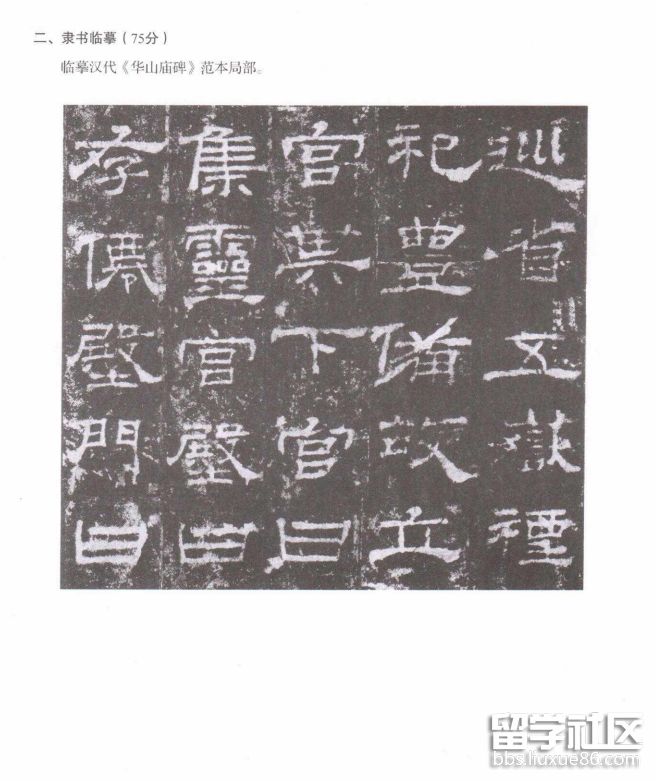 二、隶书临摹（75分）
临摹汉代《华山庙碑》范本局部。
巡省五嶽禋
祀豊備故立
宫其下宫曰
集靈宫殿曰
存僊殿門曰
留学社区
bbs.liuxue86.com